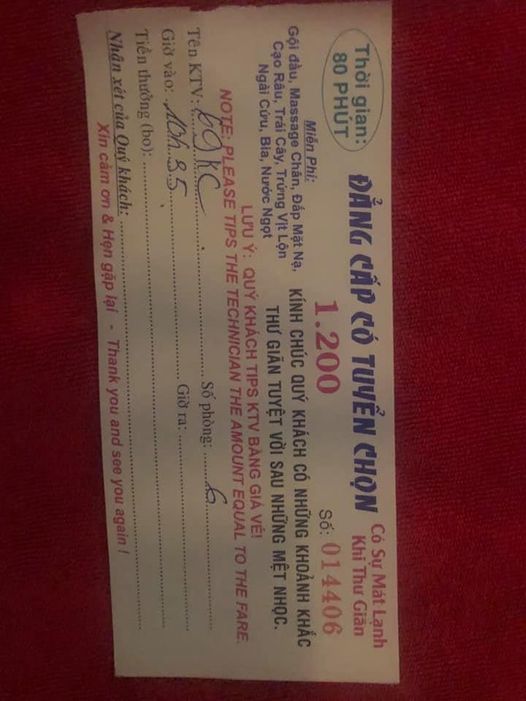 Thời gian:
80 PHÚT
ĐẲNG CẤP CÓ TUYỂN CHỌN
Có Sự Mát Lạnh
Khi Thư Giãn
Miễn Phí:
Gội đầu, Massage Chân, Đắp Mặt Nạ,
Cạo Râu, Trái Cây, Trứng Vịt Lộn
Ngải Cứu, Bia, Nước Ngọt
1.200
Số: 014406
KÍNH CHÚC QUÝ KHÁCH CÓ NHỮNG KHOẢNH KHẮC
THƯ GIÃN TUYỆT VỜI SAU NHỮNG MỆT NHỌC.
LƯU Ý: QUÝ KHÁCH TIPS KTV BẰNG GIÁ VÉ!
NOTE: PLEASE TIPS THE TECHNICIAN THE AMOUNT EQUAL TO THE FARE.
Tên KTV: Số phòng: 6
Giờ vào: 10h.35 Giờ ra:
Tiền thưởng (bo):
Nhận xét của Quý khách:
Xin cảm ơn & Hẹn gặp lại - Thank you and see you again !